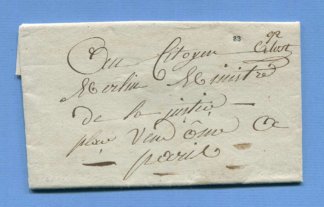 23
Au Citoyen
Merlin Ministre
de la justice
place Vendôme A
paris